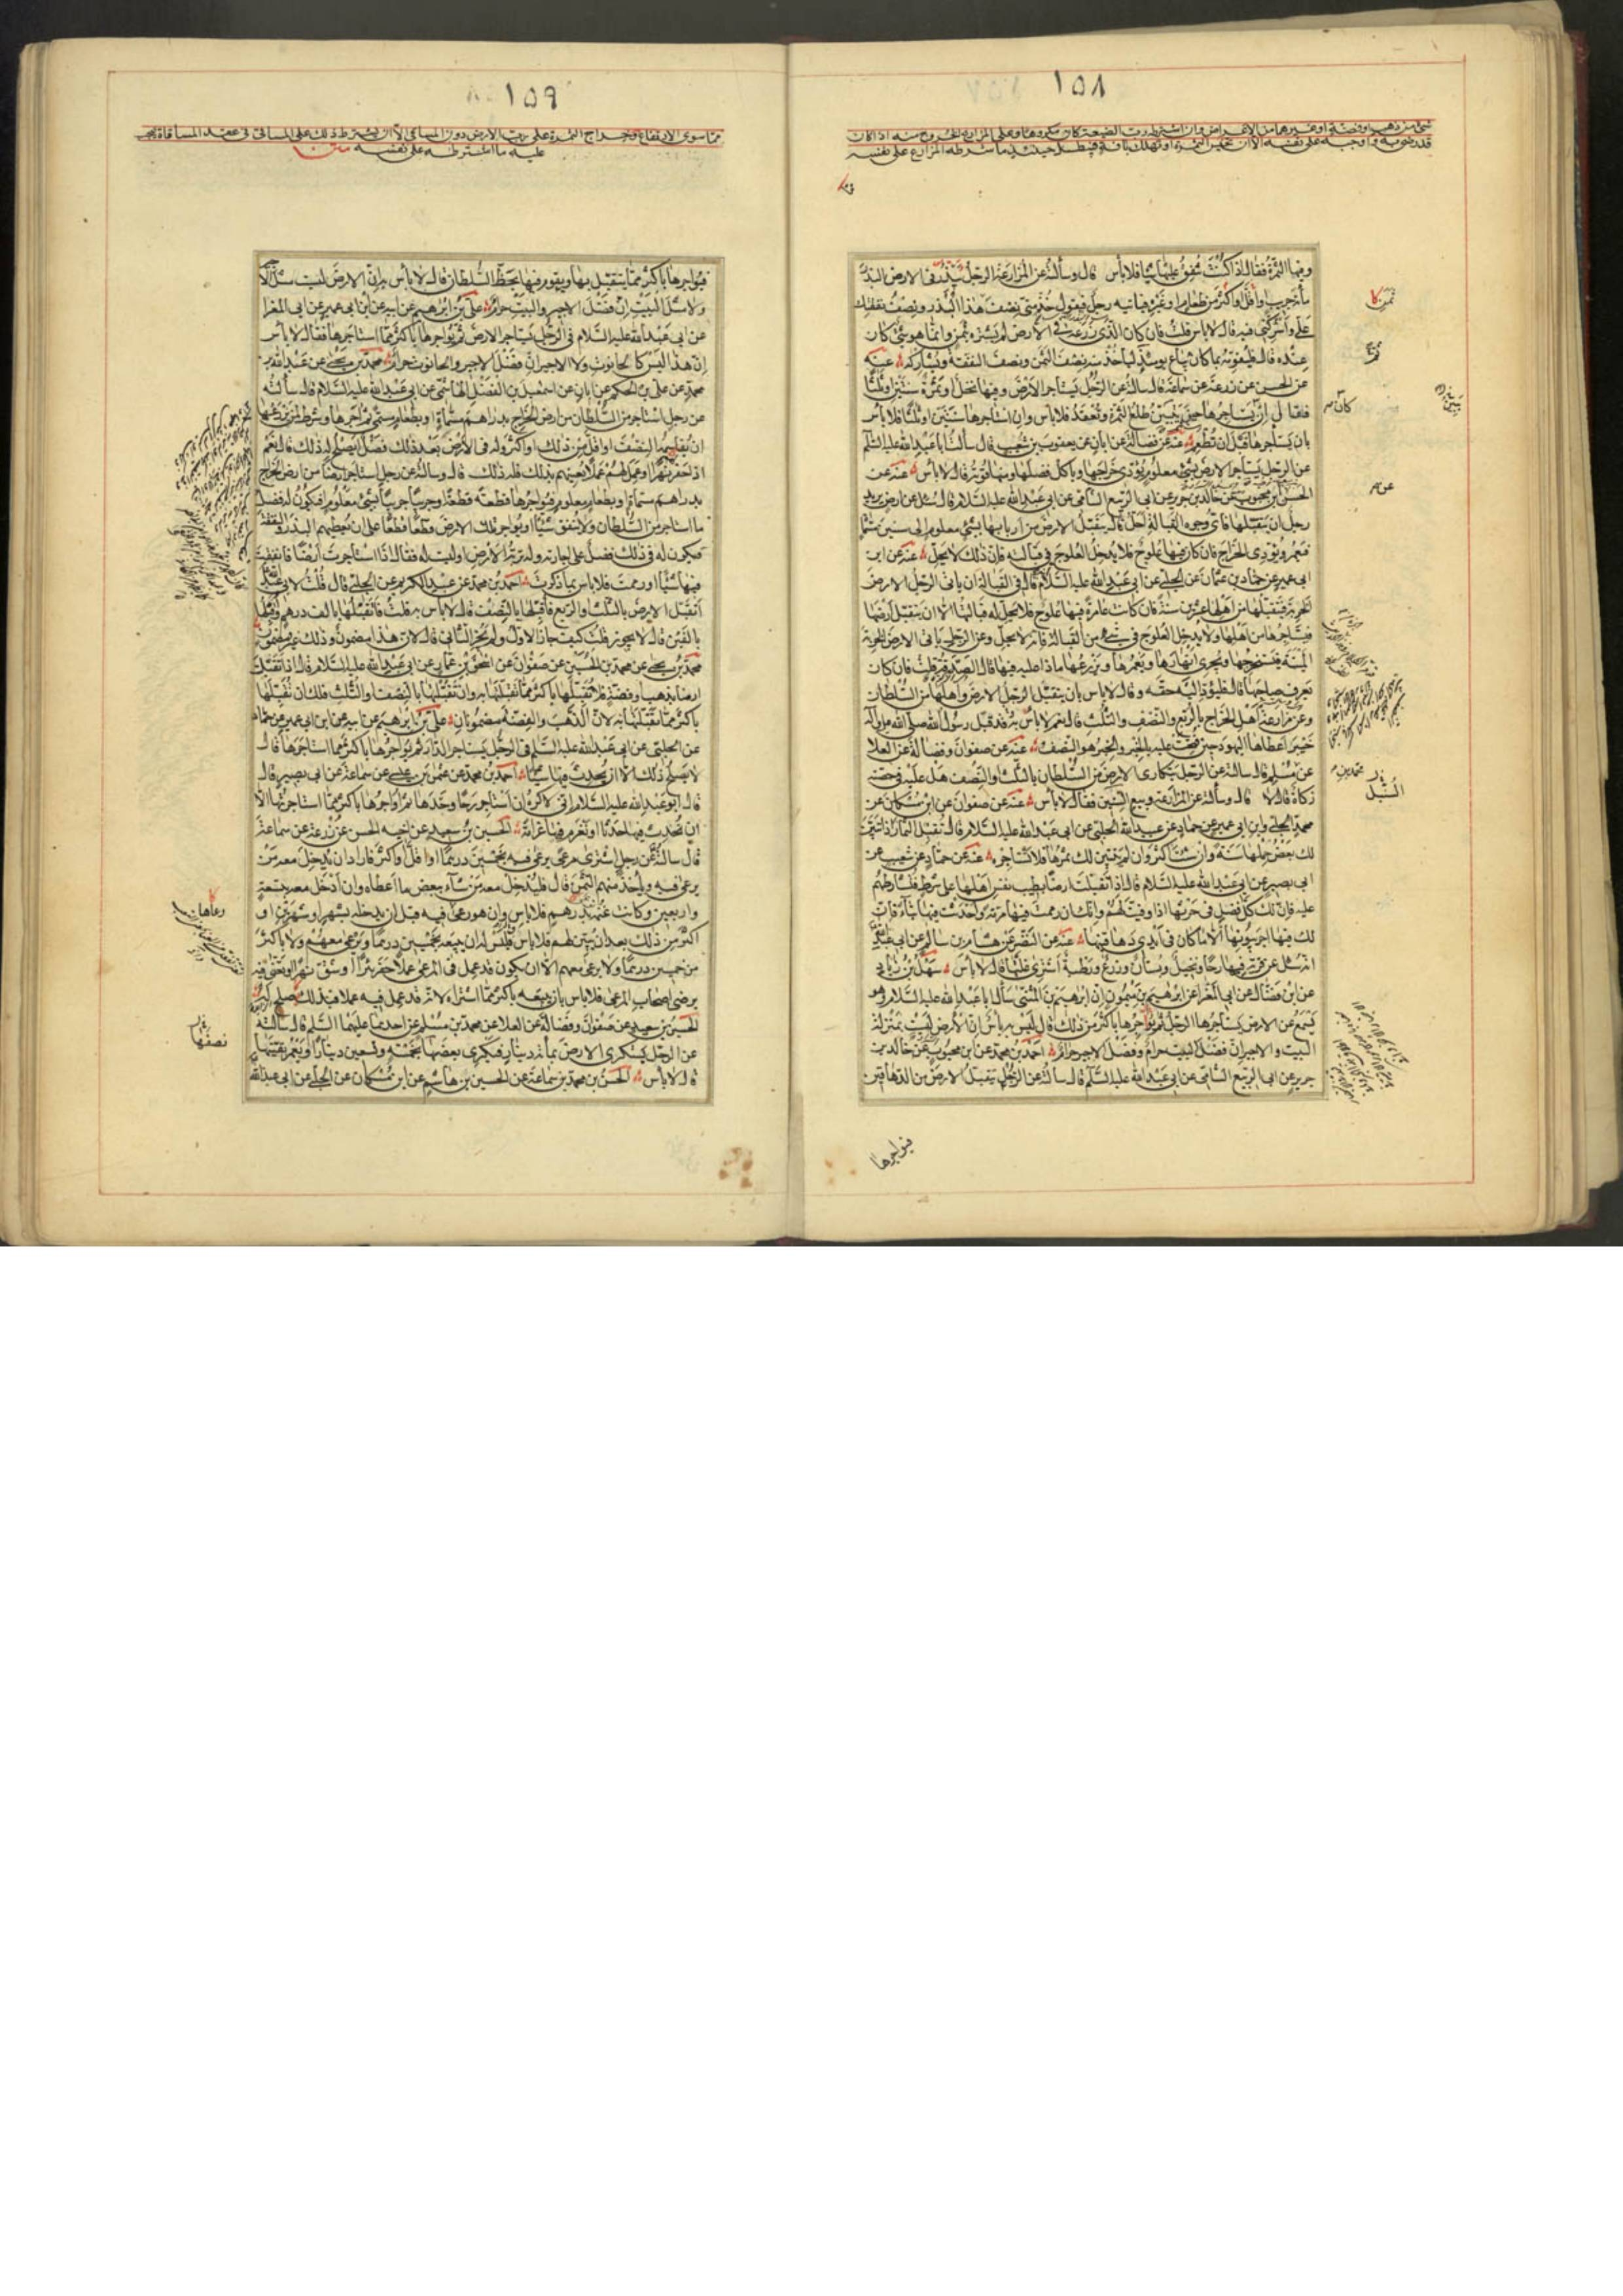 ١٥٨
شئ من ذهب او فضة او غيرهما من الاعراض وان اشترط رب الضيعة كان مكروها وعلى المزارع الخروج منه اذا كان
قد رضى به واوجبه على نفسه الا ان تخيس الثمرة او تهلك بافة فيبطل حينئذ ما شرطه المزارع على نفسه
وفيها الثمرة فقال اذا كنت تنفق عليها شيئا فلا بأس قال وسألته عن المزارعة الرجل يبذر فى الارض البذر
مائة جريب او اقل او اكثر من طعام او غيره فيأتيه رجل فيقول خذ منى نصف هذا البذر ونصف نفقتك
على واشركنى فيه قال لا باس قلت فان كان الذى زرعه فى الارض لم يشتره بثمن وانما هو شئ كان
عنده قال فليقومه بما كان يباع يومئذ ثم ليأخذ منه نصف الثمن ونصف النفقة ويشاركه عنه
عن الحسن عن زرعة عن سماعة قال سألته عن الرجل يستاجر الارض وفيها نخل او ثمرة سنتين او ثلثا
فقال ان كان يستاجرها حين يتبين طلع الثمرة وتعقد فلا باس وان استاجرها سنتين او ثلثا فلا باس
بان يستاجرها قبل ان تطعم عنه عن فضالة عن ابان عن يعقوب بن شعيب قال سألت ابا عبد الله عليه السلم
عن الرجل يستأجر الارض بشئ معلوم يؤدى خراجها وياكل فضلها ومنها قوته قال لا باس عنه عن
الحسن بن محبوب عن خالد بن جرير عن ابى الربيع الشامى عن ابى عبد الله عليه السلام قال سئل عن ارض يريد
رجل ان يتقبلها فاى وجوه القبالة احل قال يتقبل الارض من اربابها بشئ معلوم الى سنين مسماة
فيعمر ويؤدى الخراج فان كان فيها علوج فلا يدخل العلوج فى قبالته فان ذلك لا يحل عنه عن ابن
ابى عمير عن حماد بن عثمان عن الحلبى عن ابى عبد الله عليه السلام قال فى القبالة ان ياتى الرجل الارض
الخربة فيتقبلها من اهلها عشرين سنة فان كانت عامرة فيها علوج فلا يحل له قبالتها الا ان يتقبل ارضها
فيستاجرها من اهلها ولا يدخل العلوج فى شئ من القبالة فانه لا يحل وعن الرجل ياتى الارض الخربة
الميتة فيستخرجها ويجرى انهارها ويعمرها ويزرعها ماذا عليه فيها قال الصدقة قلت فان كان
يعرف صاحبها قال فليؤد اليه حقه وقال لا باس بان يتقبل الرجل الارض واهلها من السلطان
وعن مزارعة اهل الخراج بالربع والنصف والثلث قال نعم لا باس به قد قبل رسول الله صلى الله عليه وآله
خيبر اعطاها اليهود حين فتحت عليه بالخبر والخبر هو النصف عنه عن صفوان وفضالة عن العلا
عن مسلم قال سالته عن الرجل يتكارى الارض من السلطان بالثلث او النصف هل عليه فى حصته
زكاة قال لا قال وسألته عن المزارعة وبيع السنين فقال لا باس عنه عن صفوان عن ابن مسكان عن
محمد الحلبى وابن ابى عمير عن حماد عن عبيد الله الحلبى عن ابى عبد الله عليه السلام قال تقبل الثمار اذا تبين
لك بعض حملها سنة وان شئت اكثر وان لم يتبين لك ثمرها فلا تستاجر عنه عن حماد عن شعيب عن
ابى بصير عن ابى عبد الله عليه السلام قال اذا تقبلت ارضا بطيب نفس اهلها على شرط فتشارطهم
عليه فان لك كل فضل فى حرثها اذا وفيت لهم وانك ان رممت فيها مرمة واحدثت فيها بناء فان
لك فيها اجر بيوتها الا ما كان فى ايدى دهاقينها عنه عن النضر عن هشام بن سالم عن ابى عبد الله
انه سئل عن قرية فيها رحا ونخيل وبستان وزرع ورطبة اشترى غلتها قال لا باس سهل بن زياد
عن ابن فضال عن ابى المغرا عن ابرهيم بن ميمون ان ابرهيم بن المثنى سأل ابا عبد الله عليه السلام وهو
يسمع عن الارض يستاجرها الرجل ثم يؤاجرها باكثر من ذلك قال ليس به باس ان الارض ليست بمنزلة
البيت والاجير ان فضل البيت حرام وفضل الاجير حرام احمد بن محمد عن ابن محبوب عن خالد بن
جرير عن ابى الربيع الشامى عن ابى عبد الله عليه السلم قال سألته عن الرجل يتقبل الارض من الدهاقين
فيؤاجرها
كان م
عن م
محمد بن م
السنبل
١٥٩
مما سوى الارتفاع وخراج الثمرة على رب الارض دون المساقى الا ان يشترط ذلك على المساقى فى عقد المساقاة فيجب
عليه ما اشترطه على نفسه
فيؤاجرها باكثر مما يتقبل بها ويقوم فيها بحظ السلطان قال لا باس به ان الارض ليست مثل الاجير
ولا مثل البيت ان فضل الاجير والبيت حرام على بن ابرهيم عن ابيه عن ابن ابى عمير عن ابى المغرا
عن ابى عبد الله عليه السلام فى الرجل يستاجر الارض ثم يؤاجرها باكثر مما استاجرها فقال لا باس
ان هذا ليس كالحانوت ولا الاجير ان فضل الاجير والحانوت حرام محمد بن يحيى عن عبد الله بن
محمد عن على بن الحكم عن ابان عن اسمعيل بن الفضل الهاشمى عن ابى عبد الله عليه السلام قال سألته
عن رجل استاجر من السلطان من ارض الخراج بدراهم مسماة او بطعام مسمى ثم آجرها وشرط لمن يزرعها
ان يقاسمه النصف او اقل من ذلك او اكثر وله فى الارض بعد ذلك فضل ايصلح له ذلك قال نعم
اذا حفر نهرا او عمل لهم عملا يعينهم بذلك فله ذلك قال وسألته عن رجل استاجر ارضا من ارض الخراج
بدراهم مسماة او بطعام معلوم فيؤاجرها قطعة قطعة او جريبا جريبا بشئ معلوم فيكون له فضل
ما استاجر من السلطان ولا ينفق شيئا او يؤاجر تلك الارض قطعا قطعا على ان يعطيهم البذر والنفقة
فيكون له فى ذلك فضل على اجارته وله تربة الارض او ليست له فقال اذا استاجرت ارضا فانفقت
فيها شيئا او رممت فلا باس بما ذكرت احمد بن محمد عن عبد الكريم عن الحلبى قال قلت لابى عبد الله
اتقبل الارض بالثلث او الربع فاقبلها بالنصف قال لا باس به قلت فاتقبلها بالف درهم واقبلها
بالفين قال لا يجوز قلت كيف جاز الاول ولم يجز الثانى قال لان هذا مضمون وذلك غير مضمون
محمد بن يحيى عن محمد بن الحسين عن صفوان عن اسحق بن عمار عن ابى عبد الله عليه السلام قال اذا تقبلت
ارضا بذهب او فضة فلا تقبلها باكثر مما تقبلتها به وان تقبلتها بالنصف والثلث فلك ان تقبلها
باكثر مما تقبلتها به لان الذهب والفضة مضمونان على بن ابرهيم عن ابيه عن ابن ابى عمير عن حماد
عن الحلبى عن ابى عبد الله عليه السلم فى الرجل يستاجر الدار ثم يؤاجرها باكثر مما استاجرها قال
لا يصلح ذلك الا ان يحدث فيها شيئا احمد بن محمد عن عثمن بن عيسى عن سماعة عن ابى بصير قال
قال ابو عبد الله عليه السلام انى لاكره ان استاجر رحا وحدها ثم اؤاجرها باكثر مما استاجرتها الا
ان تحدث فيها حدثا او تغرم فيها غرامة الحسين بن سعيد عن اخيه الحسن عن زرعة عن سماعة
قال سألته عن رجل اشترى مرعى يرعى فيه بخمسين درهما او اقل او اكثر فاراد ان يدخل معه من
يرعى فيه وياخذ منهم الثمن قال فليدخل معه من شآء ببعض ما اعطاه وان ادخل معه بتسعة
واربعين وكانت غنمه بدرهم فلا باس وان هو رعى فيه قبل ان يدخله بشهر او شهرين او
اكثر من ذلك بعد ان يبين لهم فلا باس وليس له ان يبيعه بخمسين درهما ويرعى معهم ولا باكثر
من خمسين درهما ولا يرعى معهم الا ان يكون قد عمل فى المرعى عملا حفر بئرا او شق نهرا او تعنى فيه
برضى اصحاب المرعى فلا باس بان يبيعه باكثر مما اشتراه لانه قد عمل فيه عملا فبذلك يصلح له
الحسين بن سعيد عن صفوان وفضالة عن العلا عن محمد بن مسلم عن احدهما عليهما السلم قال سالته
عن الرجل يستكرى الارض بمائة دينار فيكرى بعضها بخمسة وتسعين دينارا ويعمر بقيتها
قال لا باس الحسن بن محمد بن سماعة عن الحسين بن هاشم عن ابن مسكان عن الحلبى عن ابى عبد الله
نصفها